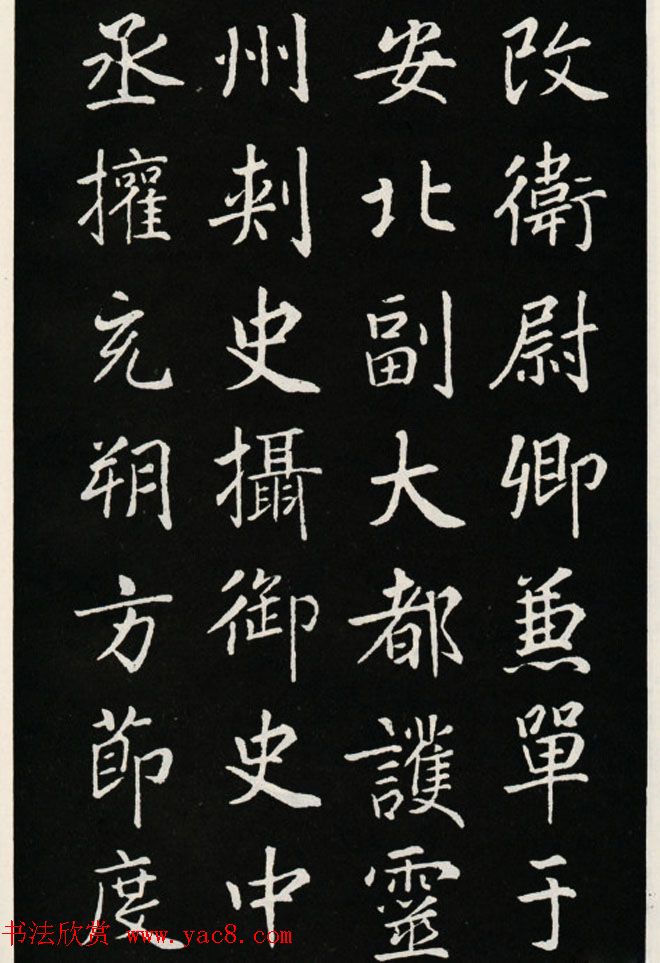 改衛尉卿兼單于
安北副大都護靈
州刺史攝御史中
丞擢充朔方節度
书法欣赏 www.yac8.com